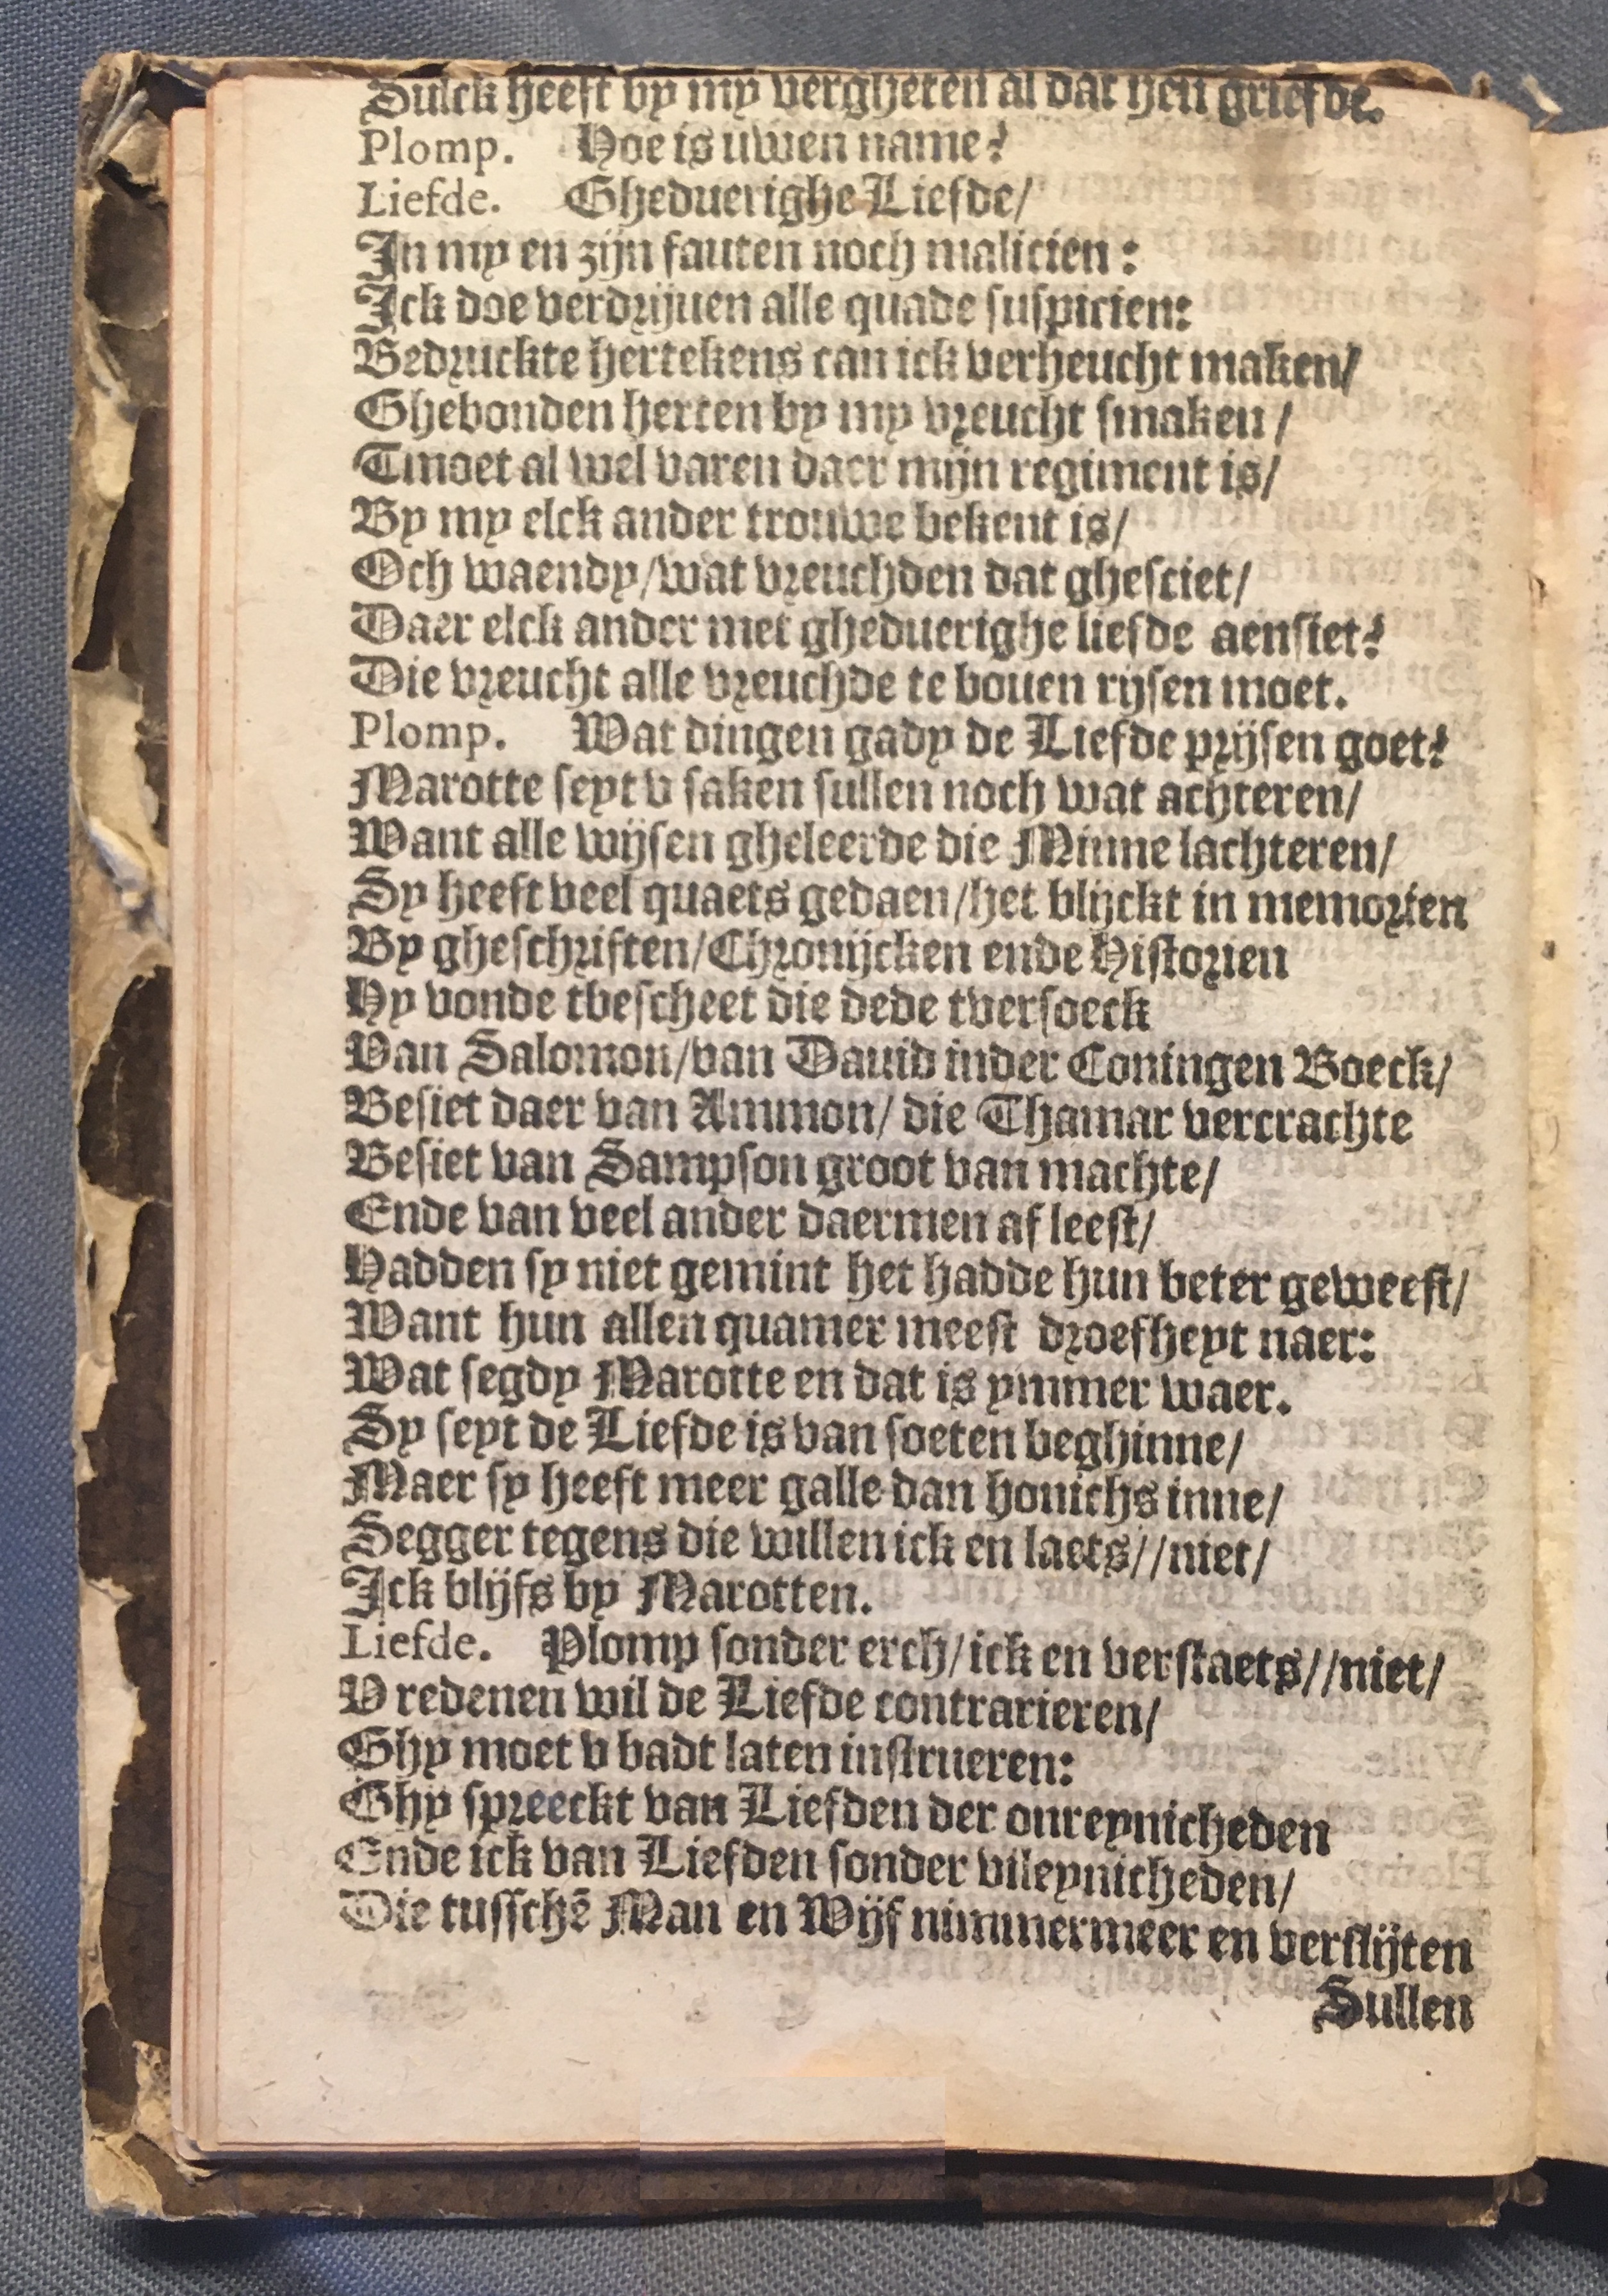 Sulck heeft by my vergheten al dat hen griefde.
Plomp. Hoe is uwen name?
Liefde. Gheduerighe Liefde/
In my en zijn fauten noch malicien:
Ick doe verdrijuen alle quade suspicien:
Bedruckte hertekens can ick verheucht maken/
Ghebonden herten by my vreucht smaken/
Tmoet al wel varen daer mijn regiment is/
By my elck ander trouwe bekent is/
Och waendy/wat vreuchden dat ghesciet/
Daer elck ander met gheduerighe liefde aensiet?
Die vreucht alle vreuchde te bouen rysen moet.
Plomp. Wat dingen gady de Liefde prijsen goet?
Marotte seyt v saken sullen noch wat achteren/
Want alle wijsen gheleerde die Minne lachteren/
Sy heeft veel quaets gedaen/het blijckt in memorien
By gheschriften/Chronijcken ende Historien
Hy vonde tbescheet die dede tversoeck
Van Salomon/van Dauid inder Coningen Boeck/
Besiet daer van Ammon/ die Thamar vercrachte
Besiet van Sampson groot van machte/
Ende van veel ander daermen af leest/
Hadden sy niet gemint het hadde hun beter geweest/
Want hun allen quamer meest droefheyt naer:
Wat segdy Marotte en dat is ymmer waer.
Sy seyt de Liefde is van soeten beghinne/
Maer sy heeft meer galle dan honichs inne/
Segger tegens die willen ick en laets//niet/
Ick blijfs by Marotten.
Liefde. Plomp sonder erch/ick en verstaets//niet/
V redenen wil de Liefde contrarieren/
Ghy moet v badt laten instrueren:
Ghy spreeckt van Liefden der onreynicheden
Ende ick van Liefden sonder vileynicheden/
Die tusschē Man en Wijf nimmermeer en verslijten
Sullen